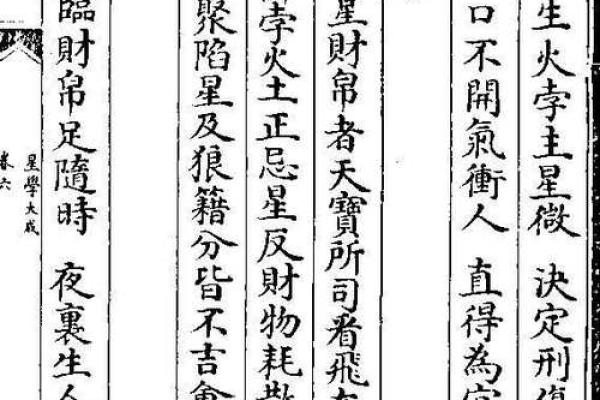 生火孛主星微 決定刑傷
口不開氣衝人 直得為官
星財帛者天寶所司看飛
孛火土正忌星反財物耗散
聚陷星及狼籍分皆不吉會
臨財帛足隨時 夜裏生人
星學大成
卷六